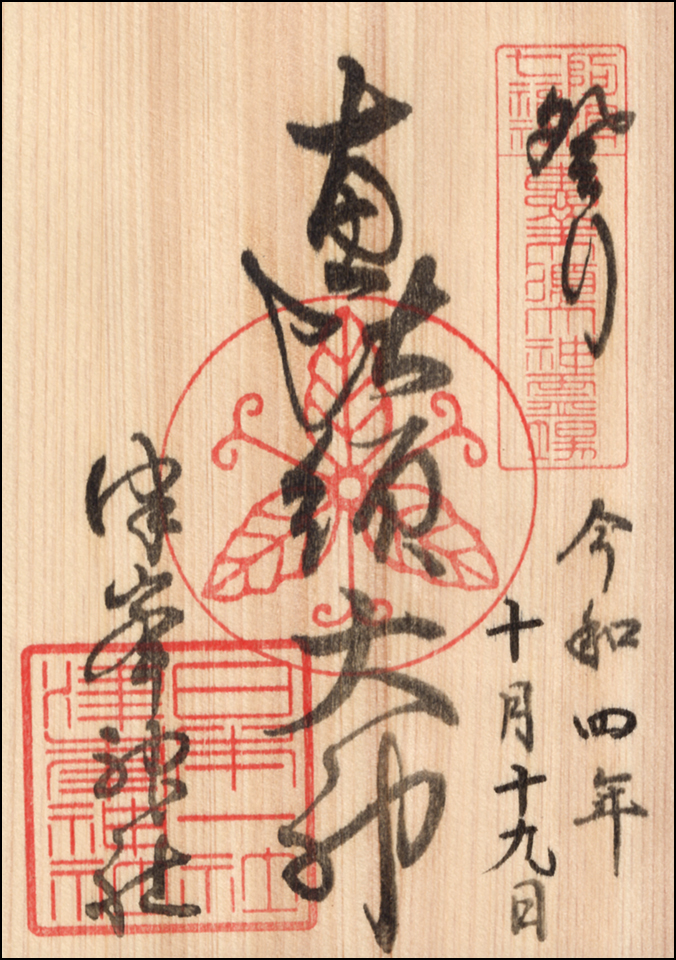 阿波
七福神
大神霊場
令和四年
十月十九日
恵比須大神
津峯神社
日本一社
津峯神社